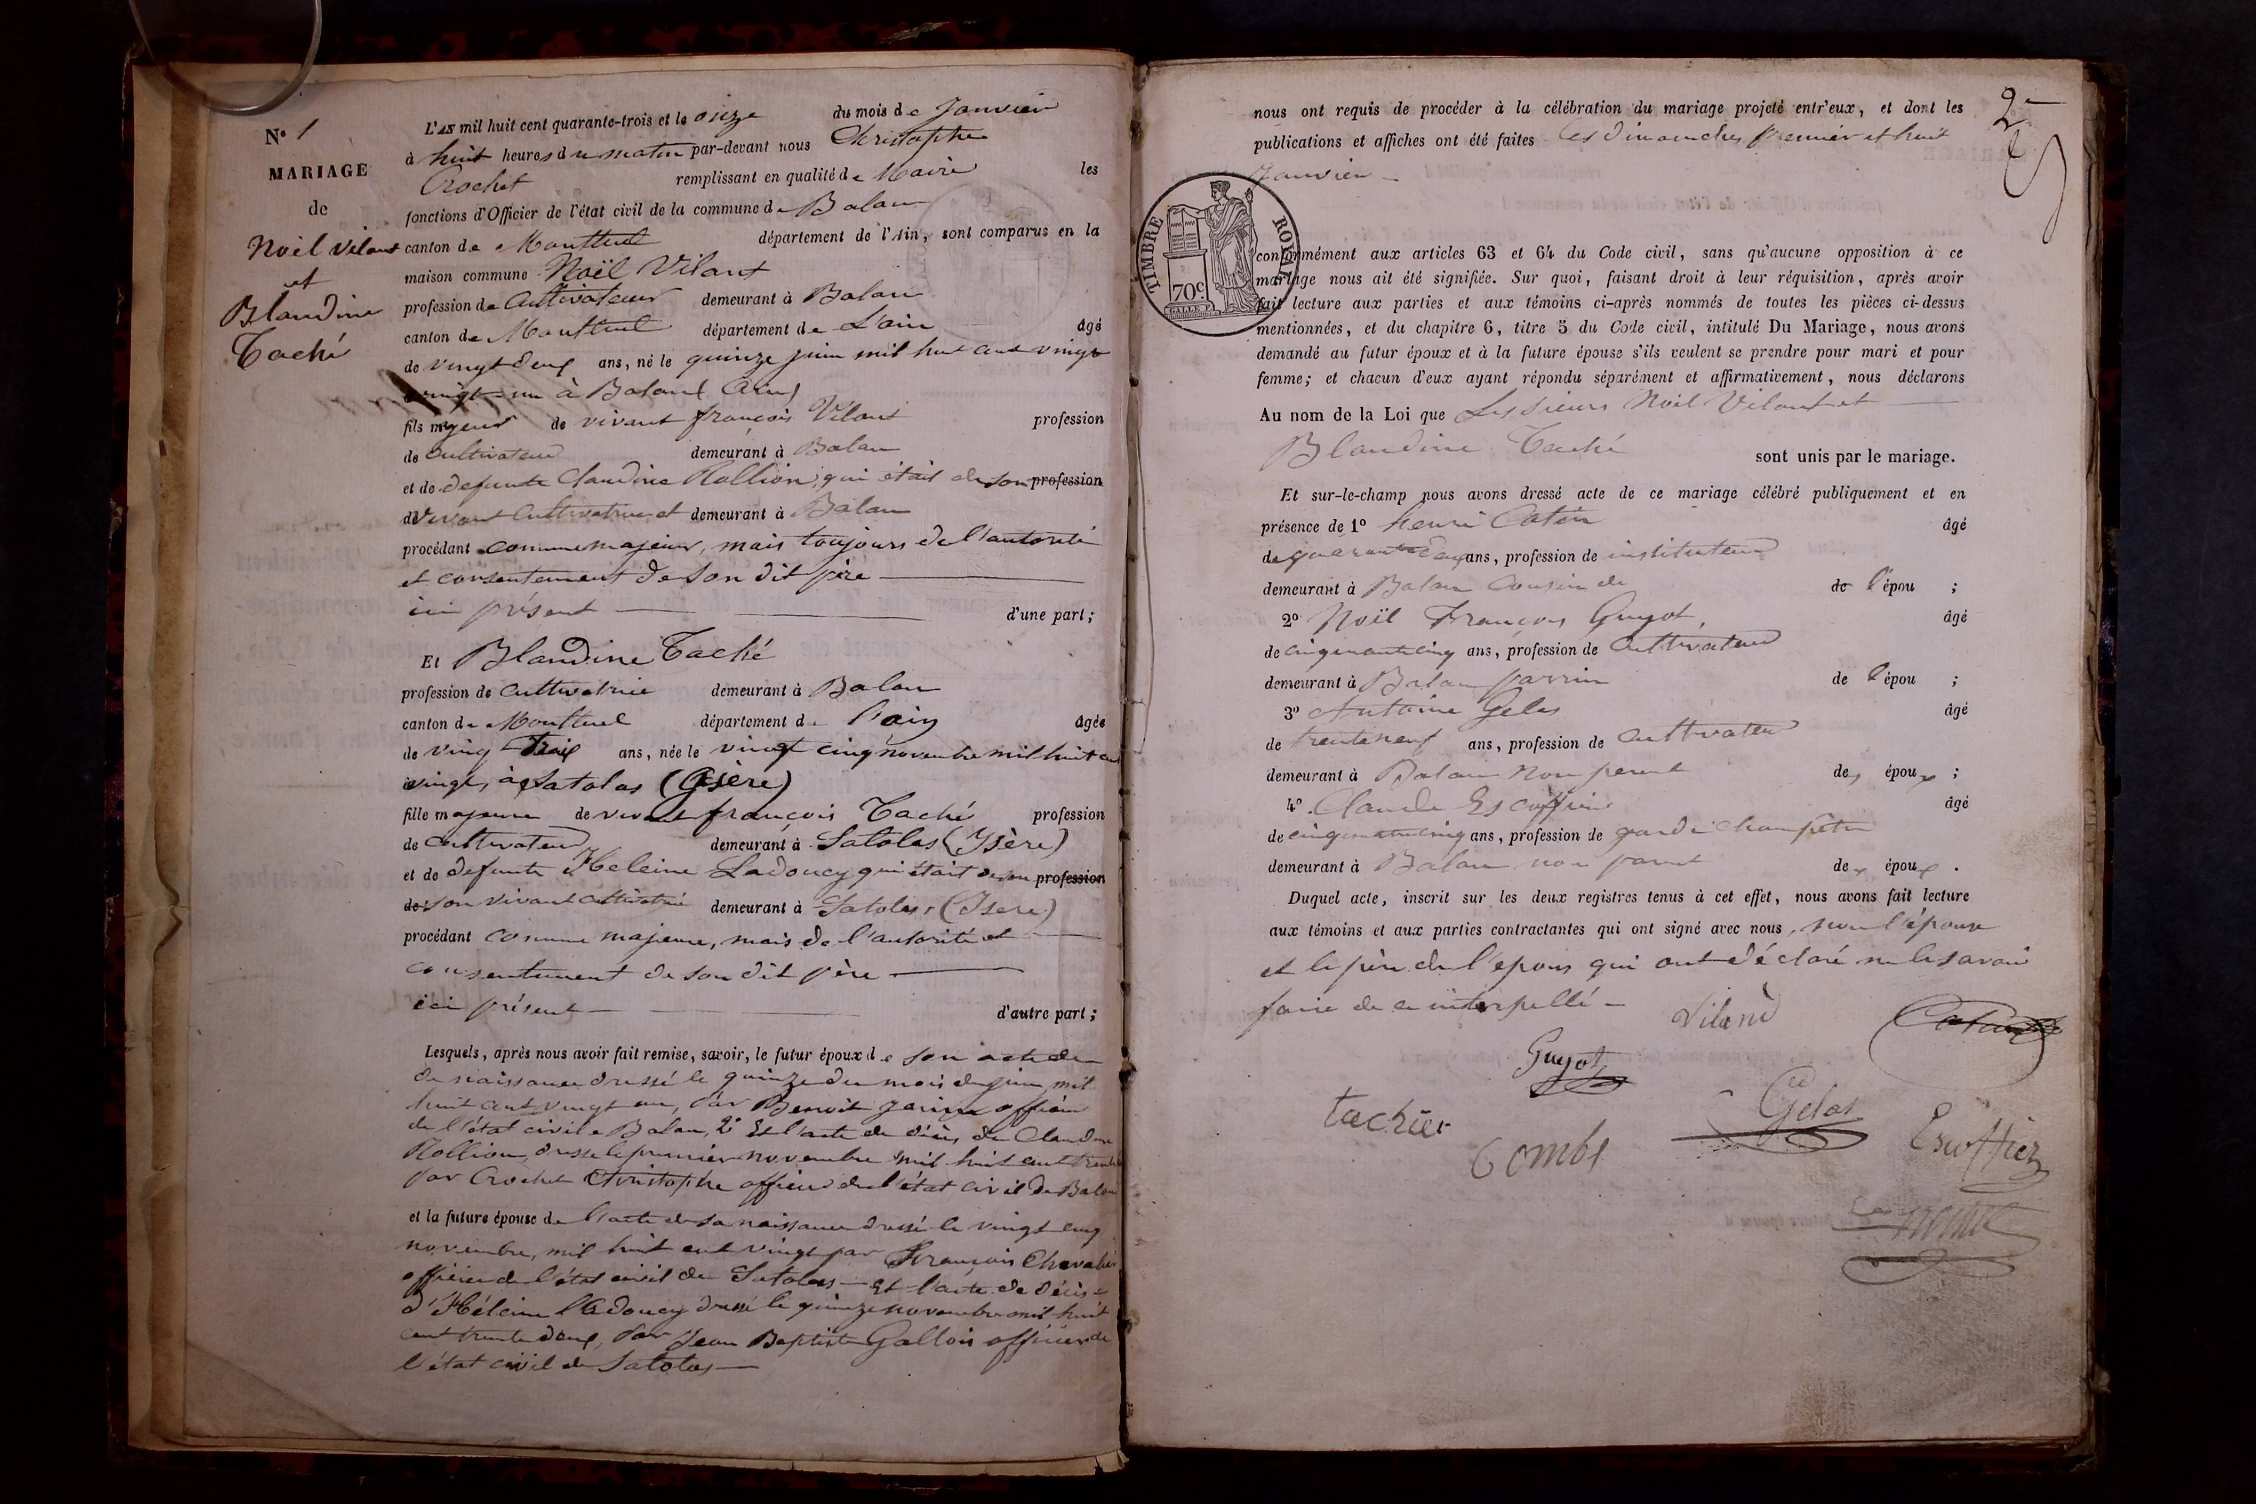 N° 1
MARIAGE
de
Noël Vilant
et
Blandine
Taché
L'AN mil huit cent quarante-trois et le onze du mois de Janvier
à huit heures du matin par-devant nous Christophe
Crochet remplissant en qualité de Maire les
fonctions d'Officier de l'état civil de la commune de Balan
canton de Montluel département de l'Ain, sont comparus en la
maison commune Noël Vilant
profession de Cultivateur demeurant à Balan
canton de Montluel département de L'ain âgé
de vingt deux ans, né le quinze juin mil huit cent vingt
vingt un à Balan (Ain)
fils majeur de vivant françois Vilant profession
de Cultivateur demeurant à Balan
et de defunte Claudine Rollion, qui était de son profession
de Vivant Cultivatrice et demeurant à Balan
procédant comme majeur, mais toujours de l'autorité
et consentement de Son dit père
ici présent d'une part;
Et Blandine Taché
profession de Cultivatrice demeurant à Balan
canton de Montluel département de l'ain âgée
de ving trois ans, née le vingt cinq novembre mil huit cent
vingt, à Satolas (Isère)
fille majeure de vivant françois Taché profession
de Cultivateur demeurant à Satolas (Isère)
et de defunte Heleine Ladoucy qui était de son profession
de son vivant cultivatrice demeurant à Satolas (Isere)
procédant comme majeure, mais de l'autorité et
consentement de son dit père
ici présent d'autre part;
Lesquels, après nous avoir fait remise, savoir, le futur époux de son acte de
de naissance dressé le quinze du mois de juin mil
huit cent vingt un, par Benoit officier
de l'état civil a Balan, 2° Et l'acte de décès de Claudine
Rollion, dressé le premier novembre mil huit cent trente
par Crochet Christophe officier de l'état civil de Balan
et la future épouse de l'acte de sa naissance dressé le vingt cinq
novembre, mil huit cent vingt par François Chevalier
officier de l'état civil de Satolas — Et l'acte de décès
d'Héleine Ladoucy dressé le quinze novembre mil huit
cent trente deux, par Jean Baptiste Gallois officier de
l'état civil de Satolas —
2
nous ont requis de procéder à la célébration du mariage projeté entr'eux, et dont les
publications et affiches ont été faites les dimanches premier et huit
Janvier —
TIMBRE ROYAL
70c
conformément aux articles 63 et 64 du Code civil, sans qu'aucune opposition à ce
mariage nous ait été signifiée. Sur quoi, faisant droit à leur réquisition, après avoir
fait lecture aux parties et aux témoins ci-après nommés de toutes les pièces ci-dessus
mentionnées, et du chapitre 6, titre 5 du Code civil, intitulé Du Mariage, nous avons
demandé au futur époux et à la future épouse s'ils veulent se prendre pour mari et pour
femme; et chacun d'eux ayant répondu séparément et affirmativement, nous déclarons
Au nom de la Loi que Les sieurs Noël Vilant et
Blandine Taché sont unis par le mariage.
Et sur-le-champ nous avons dressé acte de ce mariage célébré publiquement et en
présence de 1° henri Catin âgé
de quarante deux ans, profession de instituteur
demeurant à Balan Cousin de de l'épou ;
2° Noël François Guyot, âgé
de cinquante cinq ans, profession de Cultivateur
demeurant à Balan parrin de l'épou ;
3° Antoine Gelas âgé
de trente neuf ans, profession de Cultivateur
demeurant à Balan Non parent des époux ;
4° Claude Escoffier âgé
de cinquante cinq ans, profession de garde champêtre
demeurant à Balan non parent des époux .
Duquel acte, inscrit sur les deux registres tenus à cet effet, nous avons fait lecture
aux témoins et aux parties contractantes qui ont signé avec nous, non l'épouse
et le père de l'epoux qui ont déclaré ne le savoir
faire de ce interpellé —
Vilend
Guyot
tachier
Gelas
Combe
Escoffier